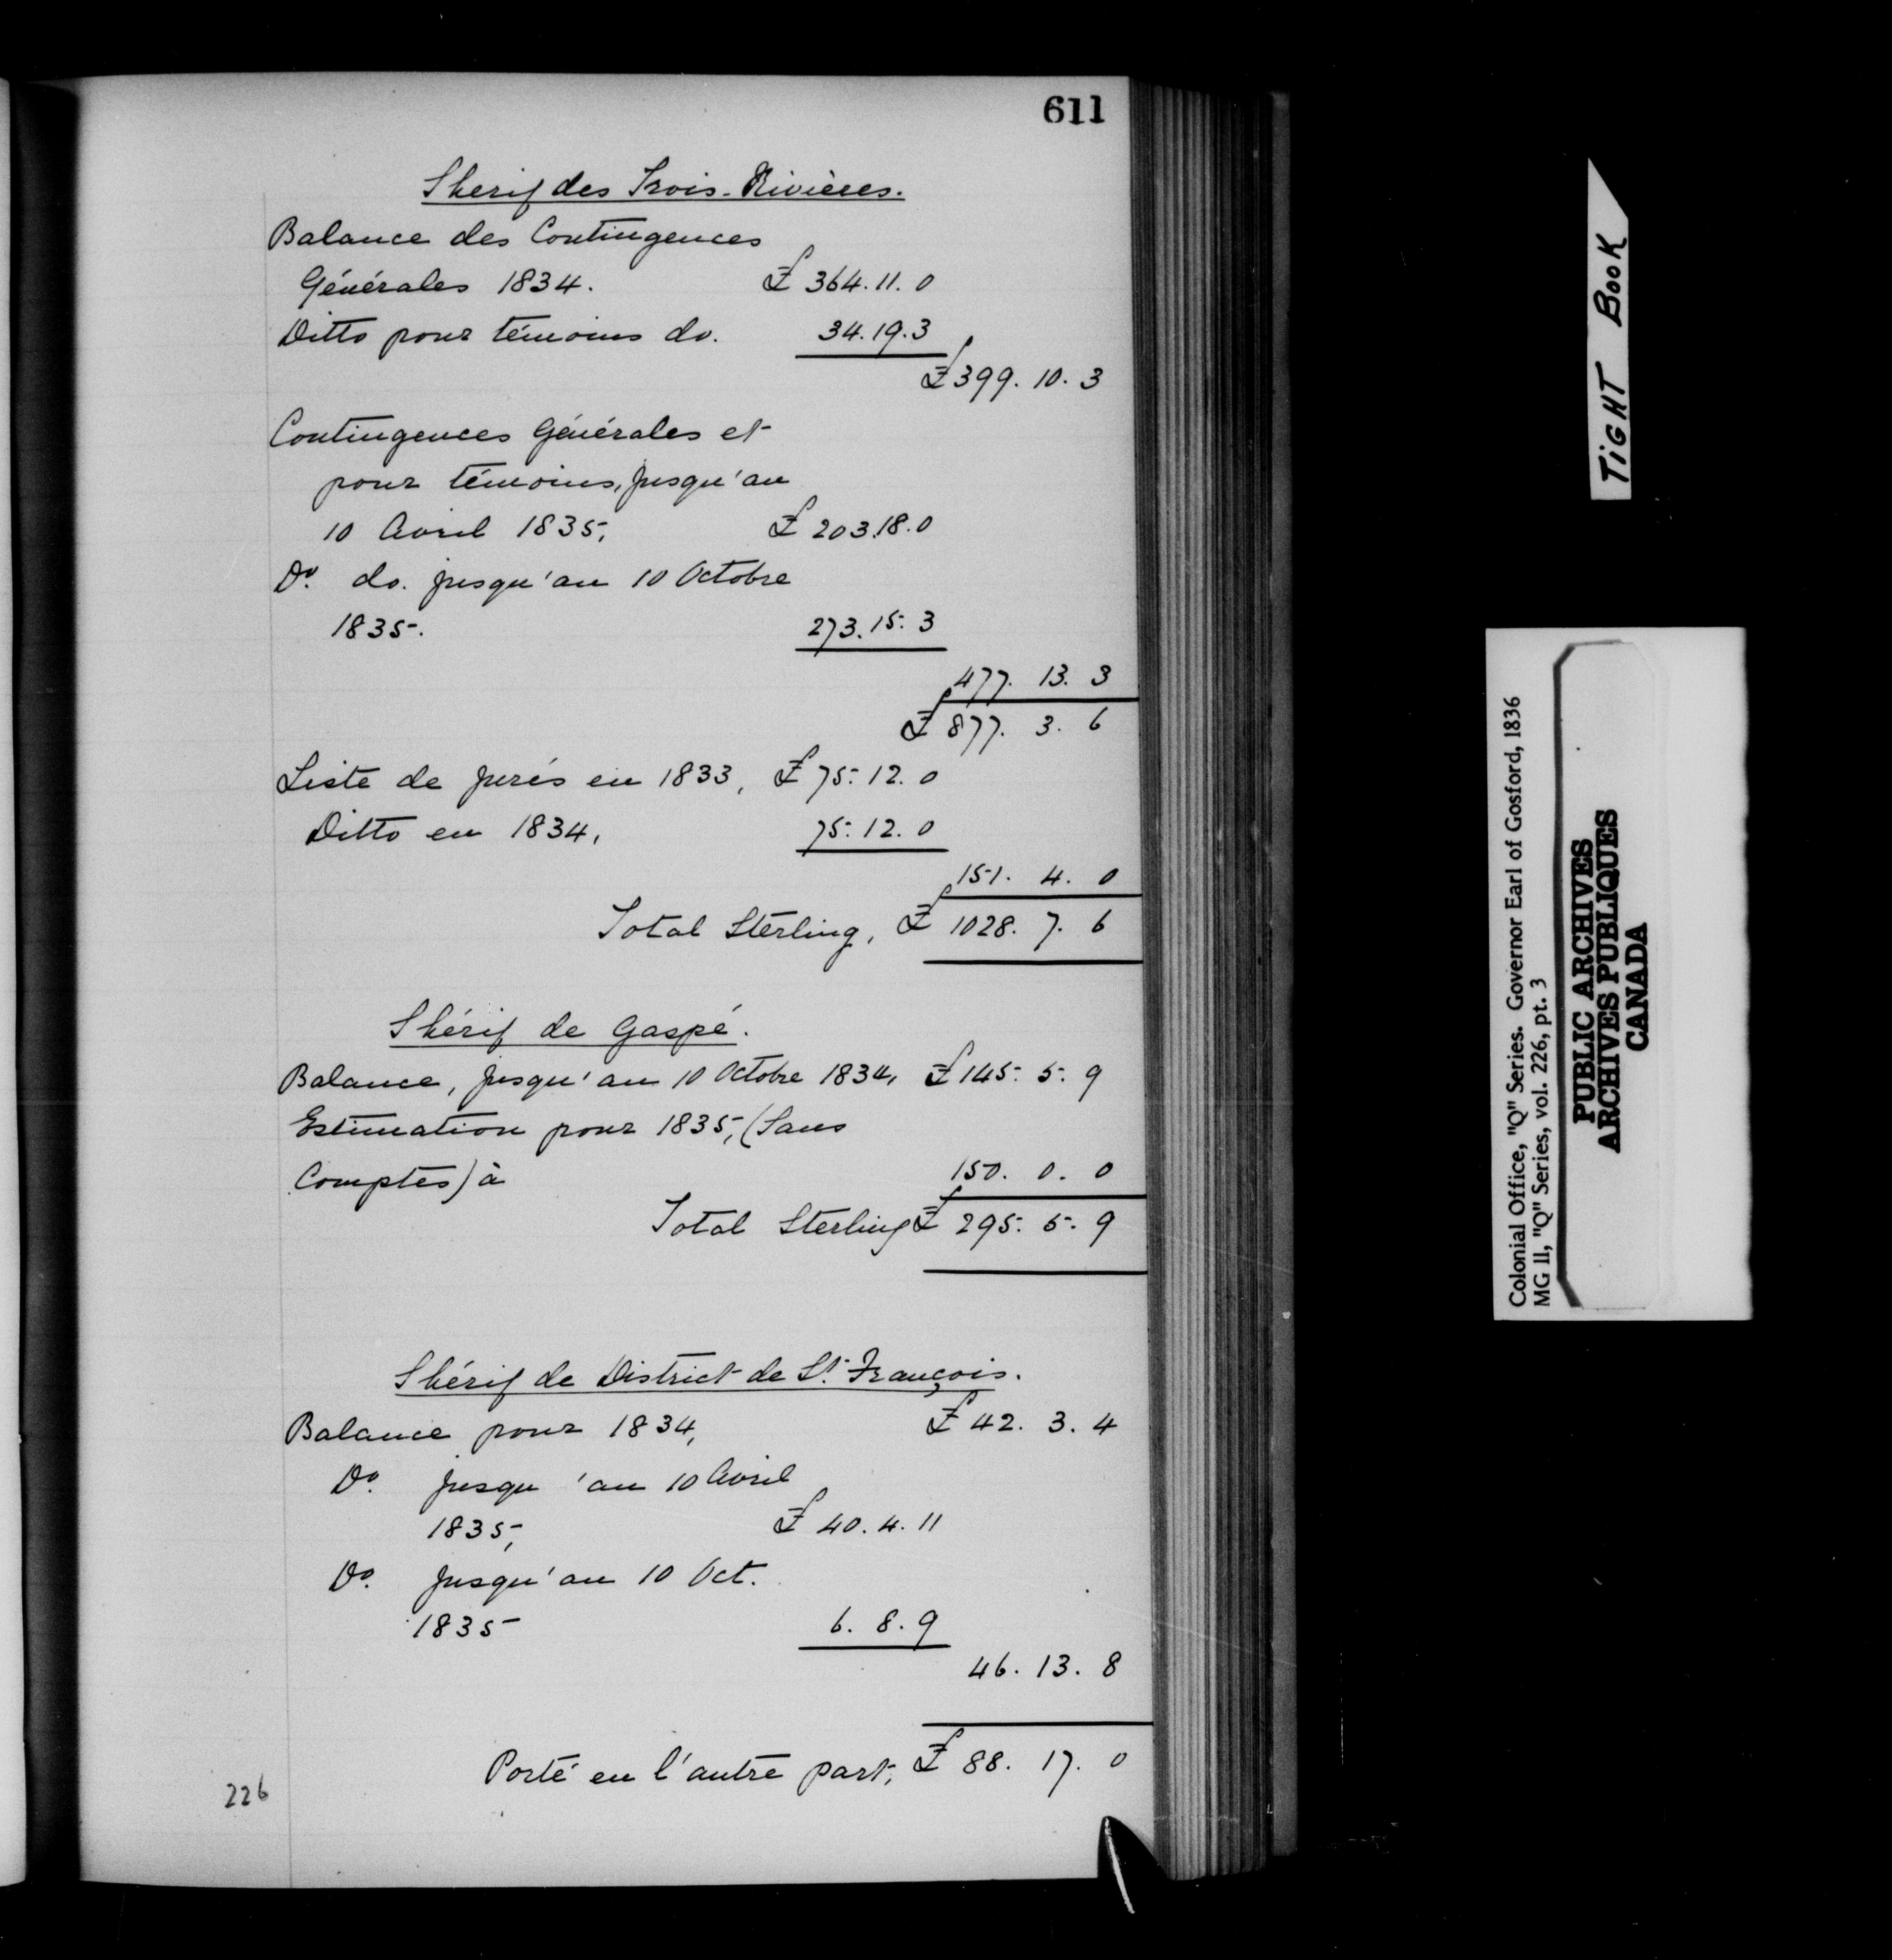 611
Sherif des Trois-Rivières.
Balance des Contingences
Générales 1834. £ 364.11.0
Ditto pour témoins do. 34.19.3
£ 399.10.3
Contingences Générales et
pour témoins, jusqu'au
10 Avril 1835, £ 203.18.0
Do. do. jusqu'au 10 Octobre
1835. 273.15.3
477.13.3
£ 877.3.6
Liste de jurés en 1833, £ 75.12.0
Ditto en 1834, 75.12.0
151.4.0
Total Sterling, £ 1028.7.6
Shérif de Gaspé.
Balance, jusqu'au 10 Octobre 1834, £ 145.5.9
Estimation pour 1835, (Sans
Comptes) à 150.0.0
Total Sterling £ 295.5.9
Shérif de District de St. François.
Balance pour 1834, £ 42.3.4
Do. jusqu'au 10 Avril
1835, £ 40.4.11
Do. jusqu'au 10 Oct.
1835 6.8.9
46.13.8
Porté en l'autre part, £ 88.17.0
226
TIGHT BOOK
Colonial Office, "Q" Series. Governor Earl of Gosford, 1836
MG 11, "Q" Series, vol. 226, pt. 3
PUBLIC ARCHIVES
ARCHIVES PUBLIQUES
CANADA